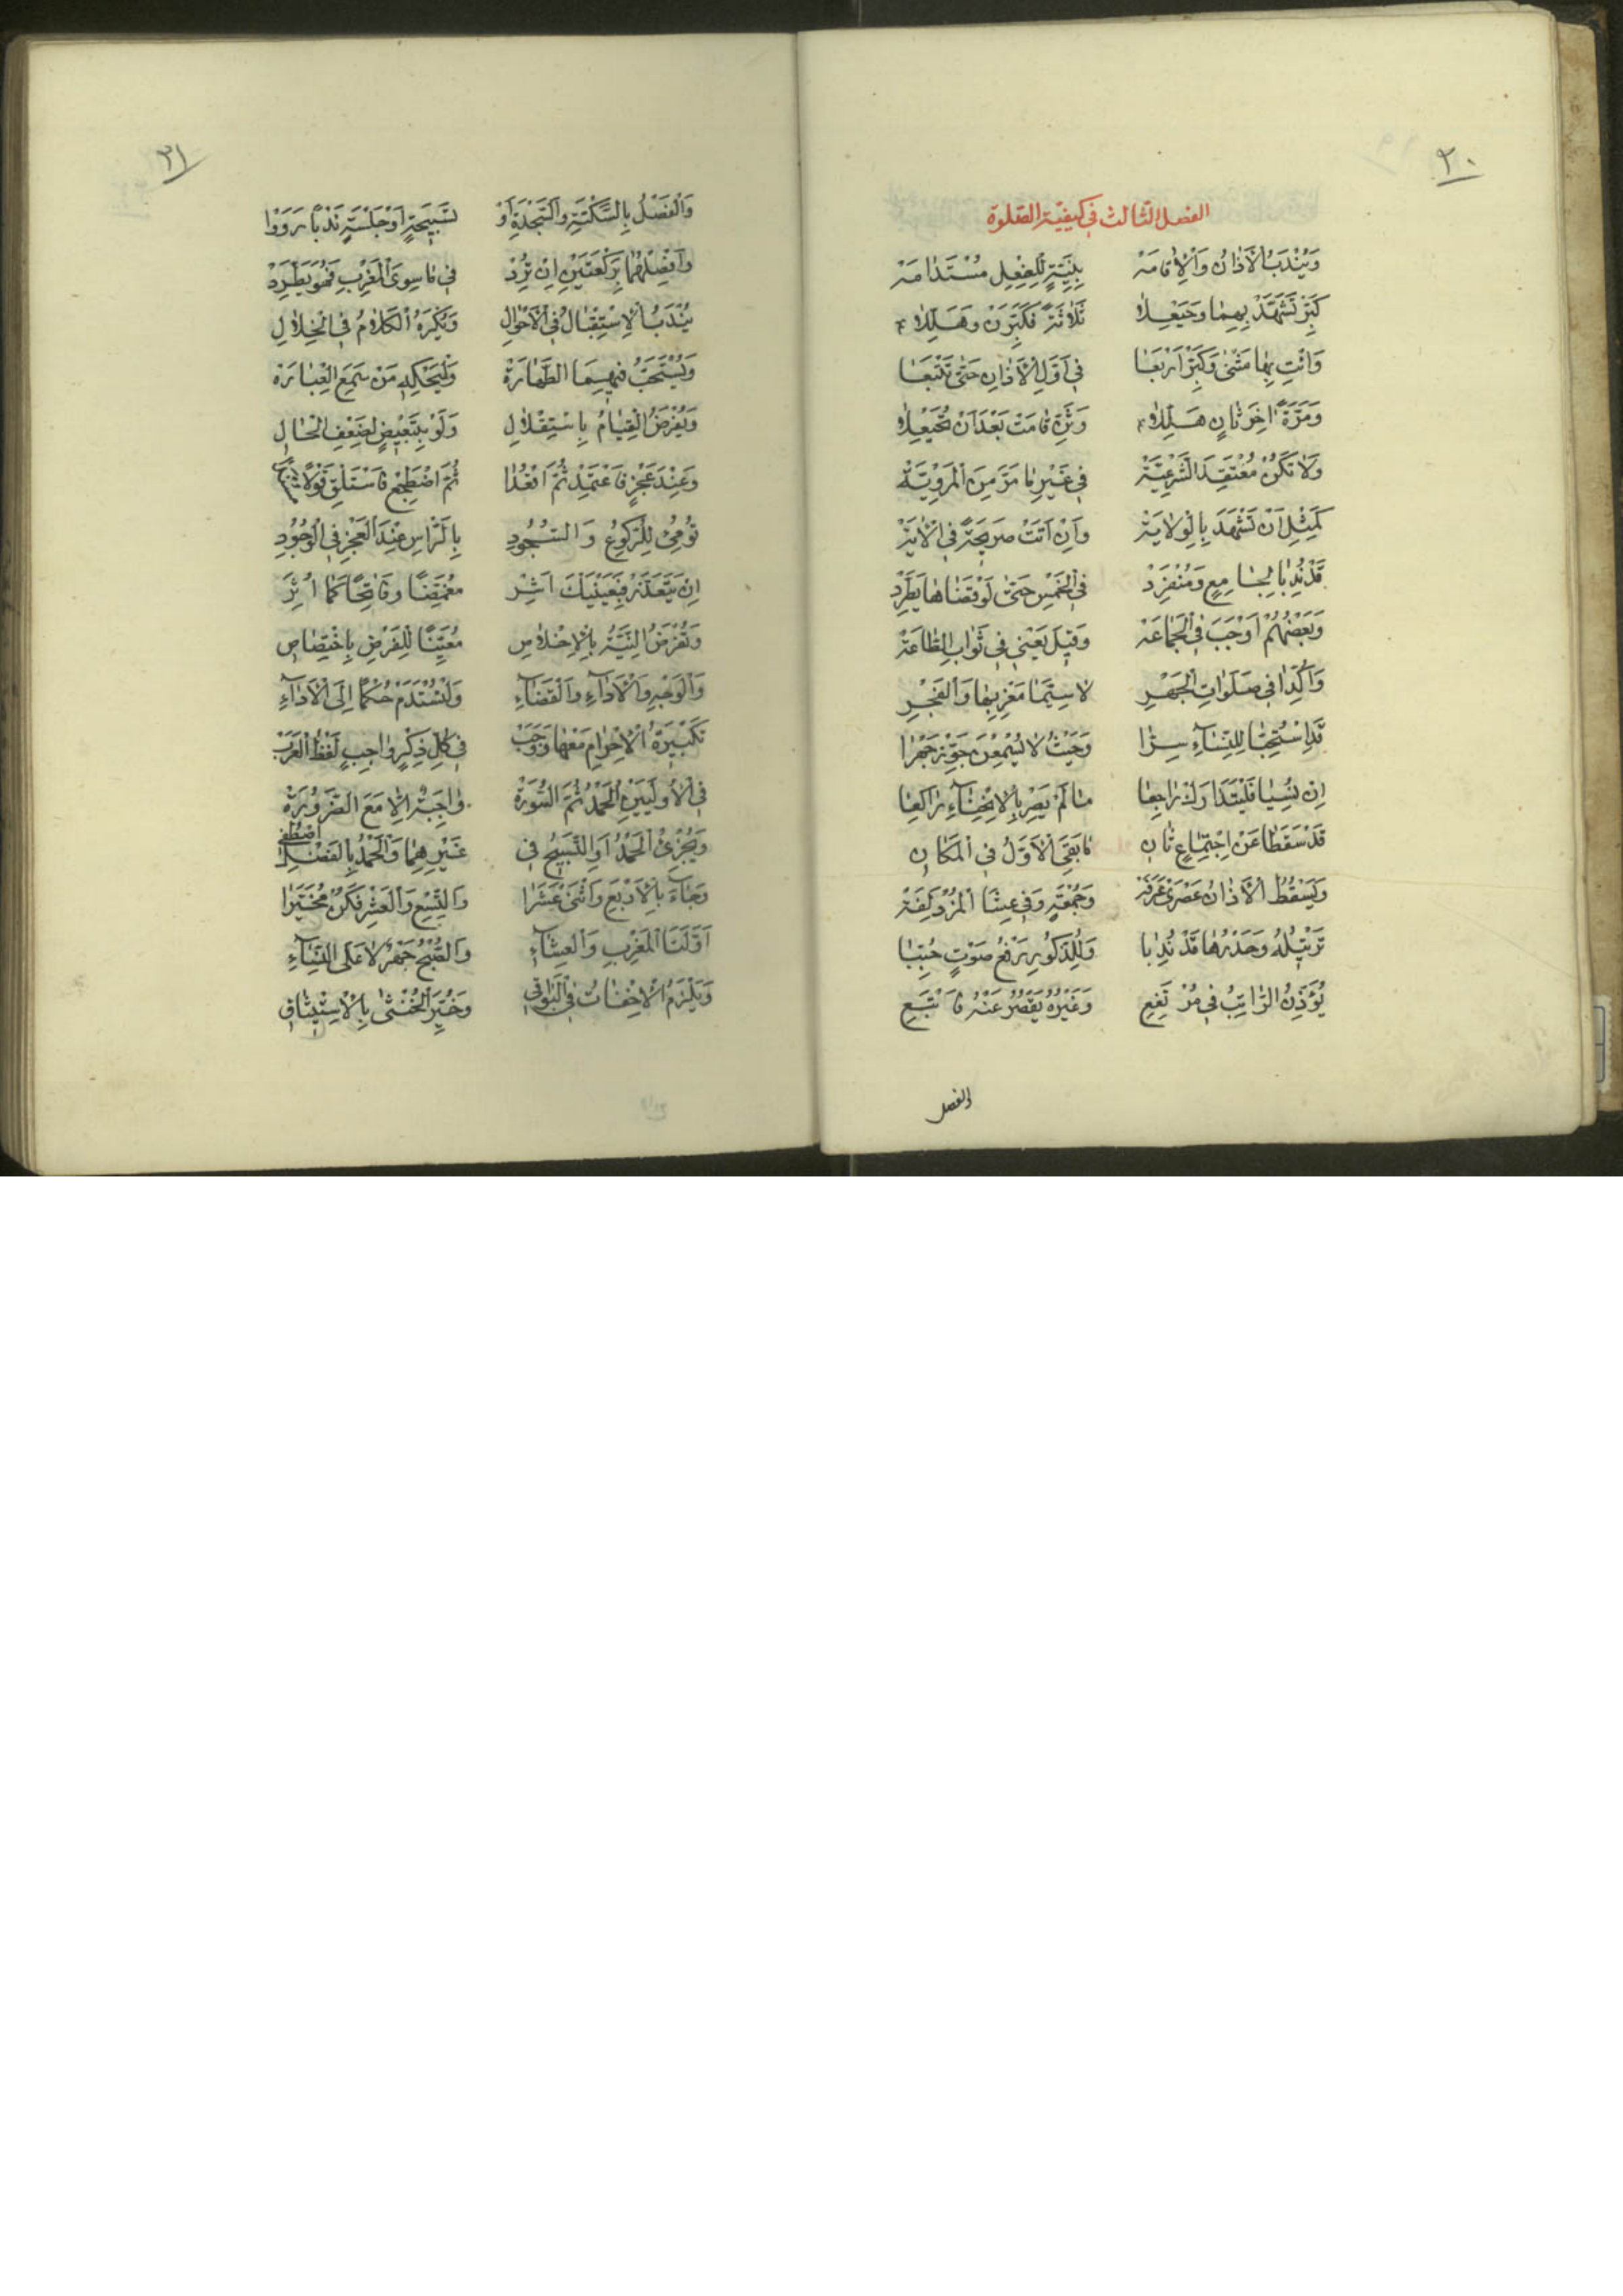 ٣٠
الفصل الثالث في كيفية الصلوة
وَيُنْدَبُ الْاَذانُ وَالْاِقامَه بِنِيَّةٍ لِلْفِعْلِ مُسْتَدامَه
كَبِّرْ تَشَهَّدْ بِهِما وَحَيْعِلاٰ ثَلاثَةً فَكَبِّرَنْ وَهَلِّلاٰ
وَائْتِ بِها مَثْنىٰ وَكَبِّرْ اَرْبَعَا فِي اَوَّلِ الْاَذانِ حَتّىٰ تَتْبَعَا
وَمَرَّةً اٰخِرَ ثانٍ هَلِّلاٰ وَثَنِّ قامَتْ بَعْدَ اَنْ تُحَيْعِلاٰ
وَلا تَكُنْ مُعْتَقِدَ الشَّرْعِيَّةْ فِي غَيْرِ ما مَرَّ مِنَ الْمَرْوِيَّةْ
كَمِثْلِ اَنْ تَشْهَدَ بِالْوِلايَةْ وَاِنْ اَتَتْ صَرِيحَةً فِي الْاٰيَةْ
قَدْ نُدِبا لِجامِعٍ وَمُنْفَرِدْ فِي الْخَمْسِ حَتّىٰ لَوْ قَضاها يَطَّرِدْ
وَبَعْضُهُمْ اَوْجَبَ فِي الْجَماعَه وَقِيلَ يَعْنِي فِي ثَوابِ الطّاعَةْ
وَاُكِّدا فِي صَلَواتِ الْجَهْرِ لا سِيَّما مَغْرِبِها وَالْفَجْرِ
قَدِ اسْتُحِبّا لِلنِّسآءِ سِرّا وَحَيْثُ لا يُسْمِعْنَ جَوِّزْ جَهْرا
اِنْ نُسِيا فَلْيُبْتَدَا وَلْيُراجِعا ما لَمْ يَصِرْ بِالْاِنْحِنآءِ راكِعا
قَدْ سَقَطا عَنْ اِجْتِماعٍ ثانِ ما بَقِيَ الْاَوَّلُ فِي الْمَكانِ
وَيَسْقُطُ الْاَذانُ عَصْرَيْ عَرَفَةْ وَجُمْعَةٍ وَفِي عِشَا الْمُزْدَلِفَةْ
تَرْتِيلُهُ وَحَدْرُها قَدْ نُدِبا وَلِلذُّكُورِ رَفْعُ صَوْتٍ حُبِّبا
يُؤَذِّنُ الرّاتِبُ فِي مُرْتَفِعِ وَغَيْرُهُ يَقْصُرُ عَنْهُ فَاتْبَعِ
الفصل
٣١
وَالْفَصْلُ بِالسَّكْتَةِ وَالسَّجْدَةِ اَوْ تَسْبِيحَةٍ اَوْ جَلْسَةٍ نَدْبًا رَوَوْا
وَافْصِلْهُما بِرَكْعَتَيْنِ اِنْ تُرِدْ فِي ما سِوَى الْمَغْرِبِ فَهُوَ يَطَّرِدْ
يُنْدَبُ الْاِسْتِقْبالُ فِي الْاَحْوالِ وَيُكْرَهُ الْكَلامُ فِي الْخِلالِ
وَيُسْتَحَبُّ فِيهِمَا الطَّهارَةْ وَلْيَحْكِهِ مَنْ سَمِعَ الْعِبارَةْ
وَيُفْرَضُ الْقِيامُ بِاسْتِقْلالِ وَلَوْ بِتَبْعِيضٍ لِضَعْفِ الْحالِ
وَعِنْدَ عَجْزٍ فَاعْتَمِدْ ثُمَّ اقْعُدا ثُمَّ اضْطَجِعْ فَاسْتَلْقِ قَوْلًا
تُومِئُ لِلرُّكُوعِ وَالسُّجُودِ بِالرَّاْسِ عِنْدَ الْعَجْزِ فِي الْوُجُودِ
اِنْ يَتَعَذَّرْ فَبِعَيْنَيْكَ اَشِرْ مُغْمِضًا وَفاتِحًا كَما اُثِرْ
وَتُفْرَضُ النِّيَّةُ بِالْاِخْلاصِ مُعَيِّنًا لِلْفَرْضِ بِاخْتِصاصِ
وَالْوَجْهِ وَالْاَدآءِ وَالْقَضآءِ وَلْتُسْتَدَمْ حُكْمًا اِلَى الْاَدآءِ
تَكْبِيرَةُ الْاِحْرامِ مَعْها وَوَجَبْ فِي كُلِّ ذِكْرٍ واجِبٍ لَفْظُ الْعَرَبْ
فِي الْاُولَيَيْنِ الْحَمْدُ ثُمَّ السُّورَةْ واجِبَةٌ اِلّا مَعَ الضَّرُورَةْ
وَيُجْزِئُ الْحَمْدُ اَوِ التَّسْبِيحُ فِي غَيْرِهِما وَالْحَمْدُ بِالْفَضْلِ اصْطُفِي
وَجآءَ بِالْاَرْبَعِ وَاثْنَيْ عَشَرا وَالتِّسْعِ وَالْعَشْرِ فَكُنْ مُخَيَّرا
اَوَّلَتَا الْمَغْرِبِ وَالْعِشآءِ وَالصُّبْحُ جَهْرٌ لا عَلَى النِّسآءِ
وَيَلْزَمُ الْاِخْفاتُ فِي الْبَواقِي وَخُيِّرَ الْخُنْثىٰ بِالْاِسْتِيثاقِ